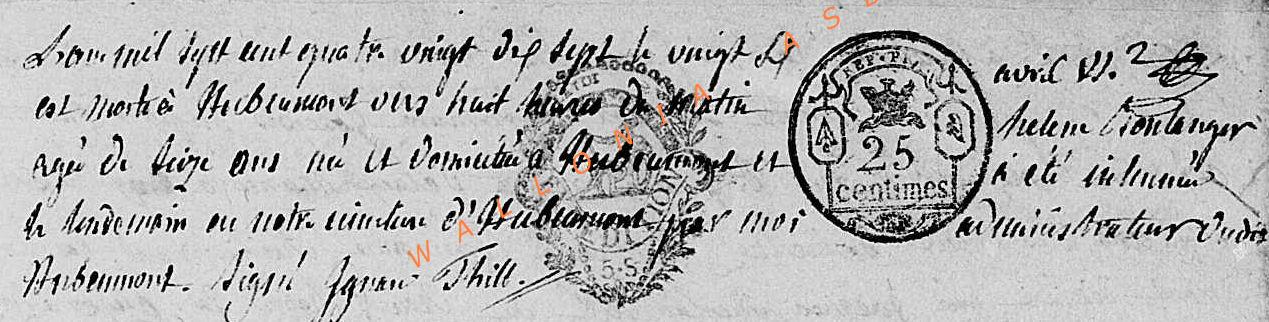 L'an mil sept cent quatre vingt dix sept le vingt avril V.S.
est morte à Hubeaumont vers huit heures du Matin helene Boulanger
agé de seize ans né et domiciliée à Hubeaumont et a été inhumée
le lendemain en notre cimetiere d'Hubeaumont par moi administrateur dudit
Hubeaumont. signé Ignace Thill.
REP. FRA.
25
centimes
WALLONIA ASB